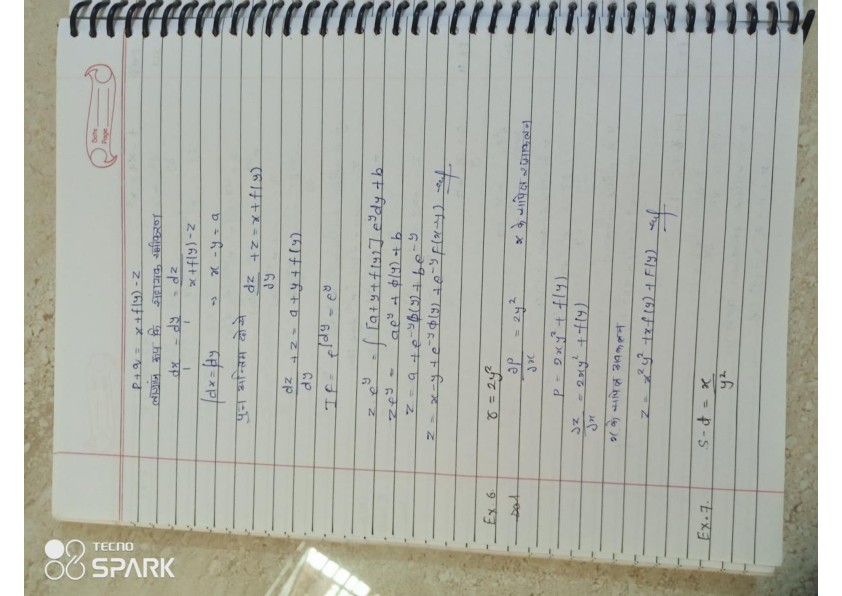 Date
Page
p+q = x+f(y)-z
dx/1 = dy/1 = dz/x+f(y)-z
∫dx=∫dy ⇒ x-y=a
पुनः अन्तिम दो से
dz/dy +z=x+f(y)
dz/dy +z=a+y+f(y)
IF = e∫dy = e^y
z.e^y = ∫[a+y+f(y)] e^y dy+b
ze^y = ae^y + ϕ(y)+b
z = a+e^-y ϕ(y)+be^-y
z = x-y+e^-y ϕ(y)+e^-y F(x-y)
Ex.6. r=2y²
∂p/∂x = 2y² x के सापेक्ष
p = 2xy²+f(y)
∂z/∂x = 2xy²+f(y)
x के सापेक्ष
z = x²y²+xf(y)+F(y)
Ex.7. s-t = x/y²
TECNO
SPARK